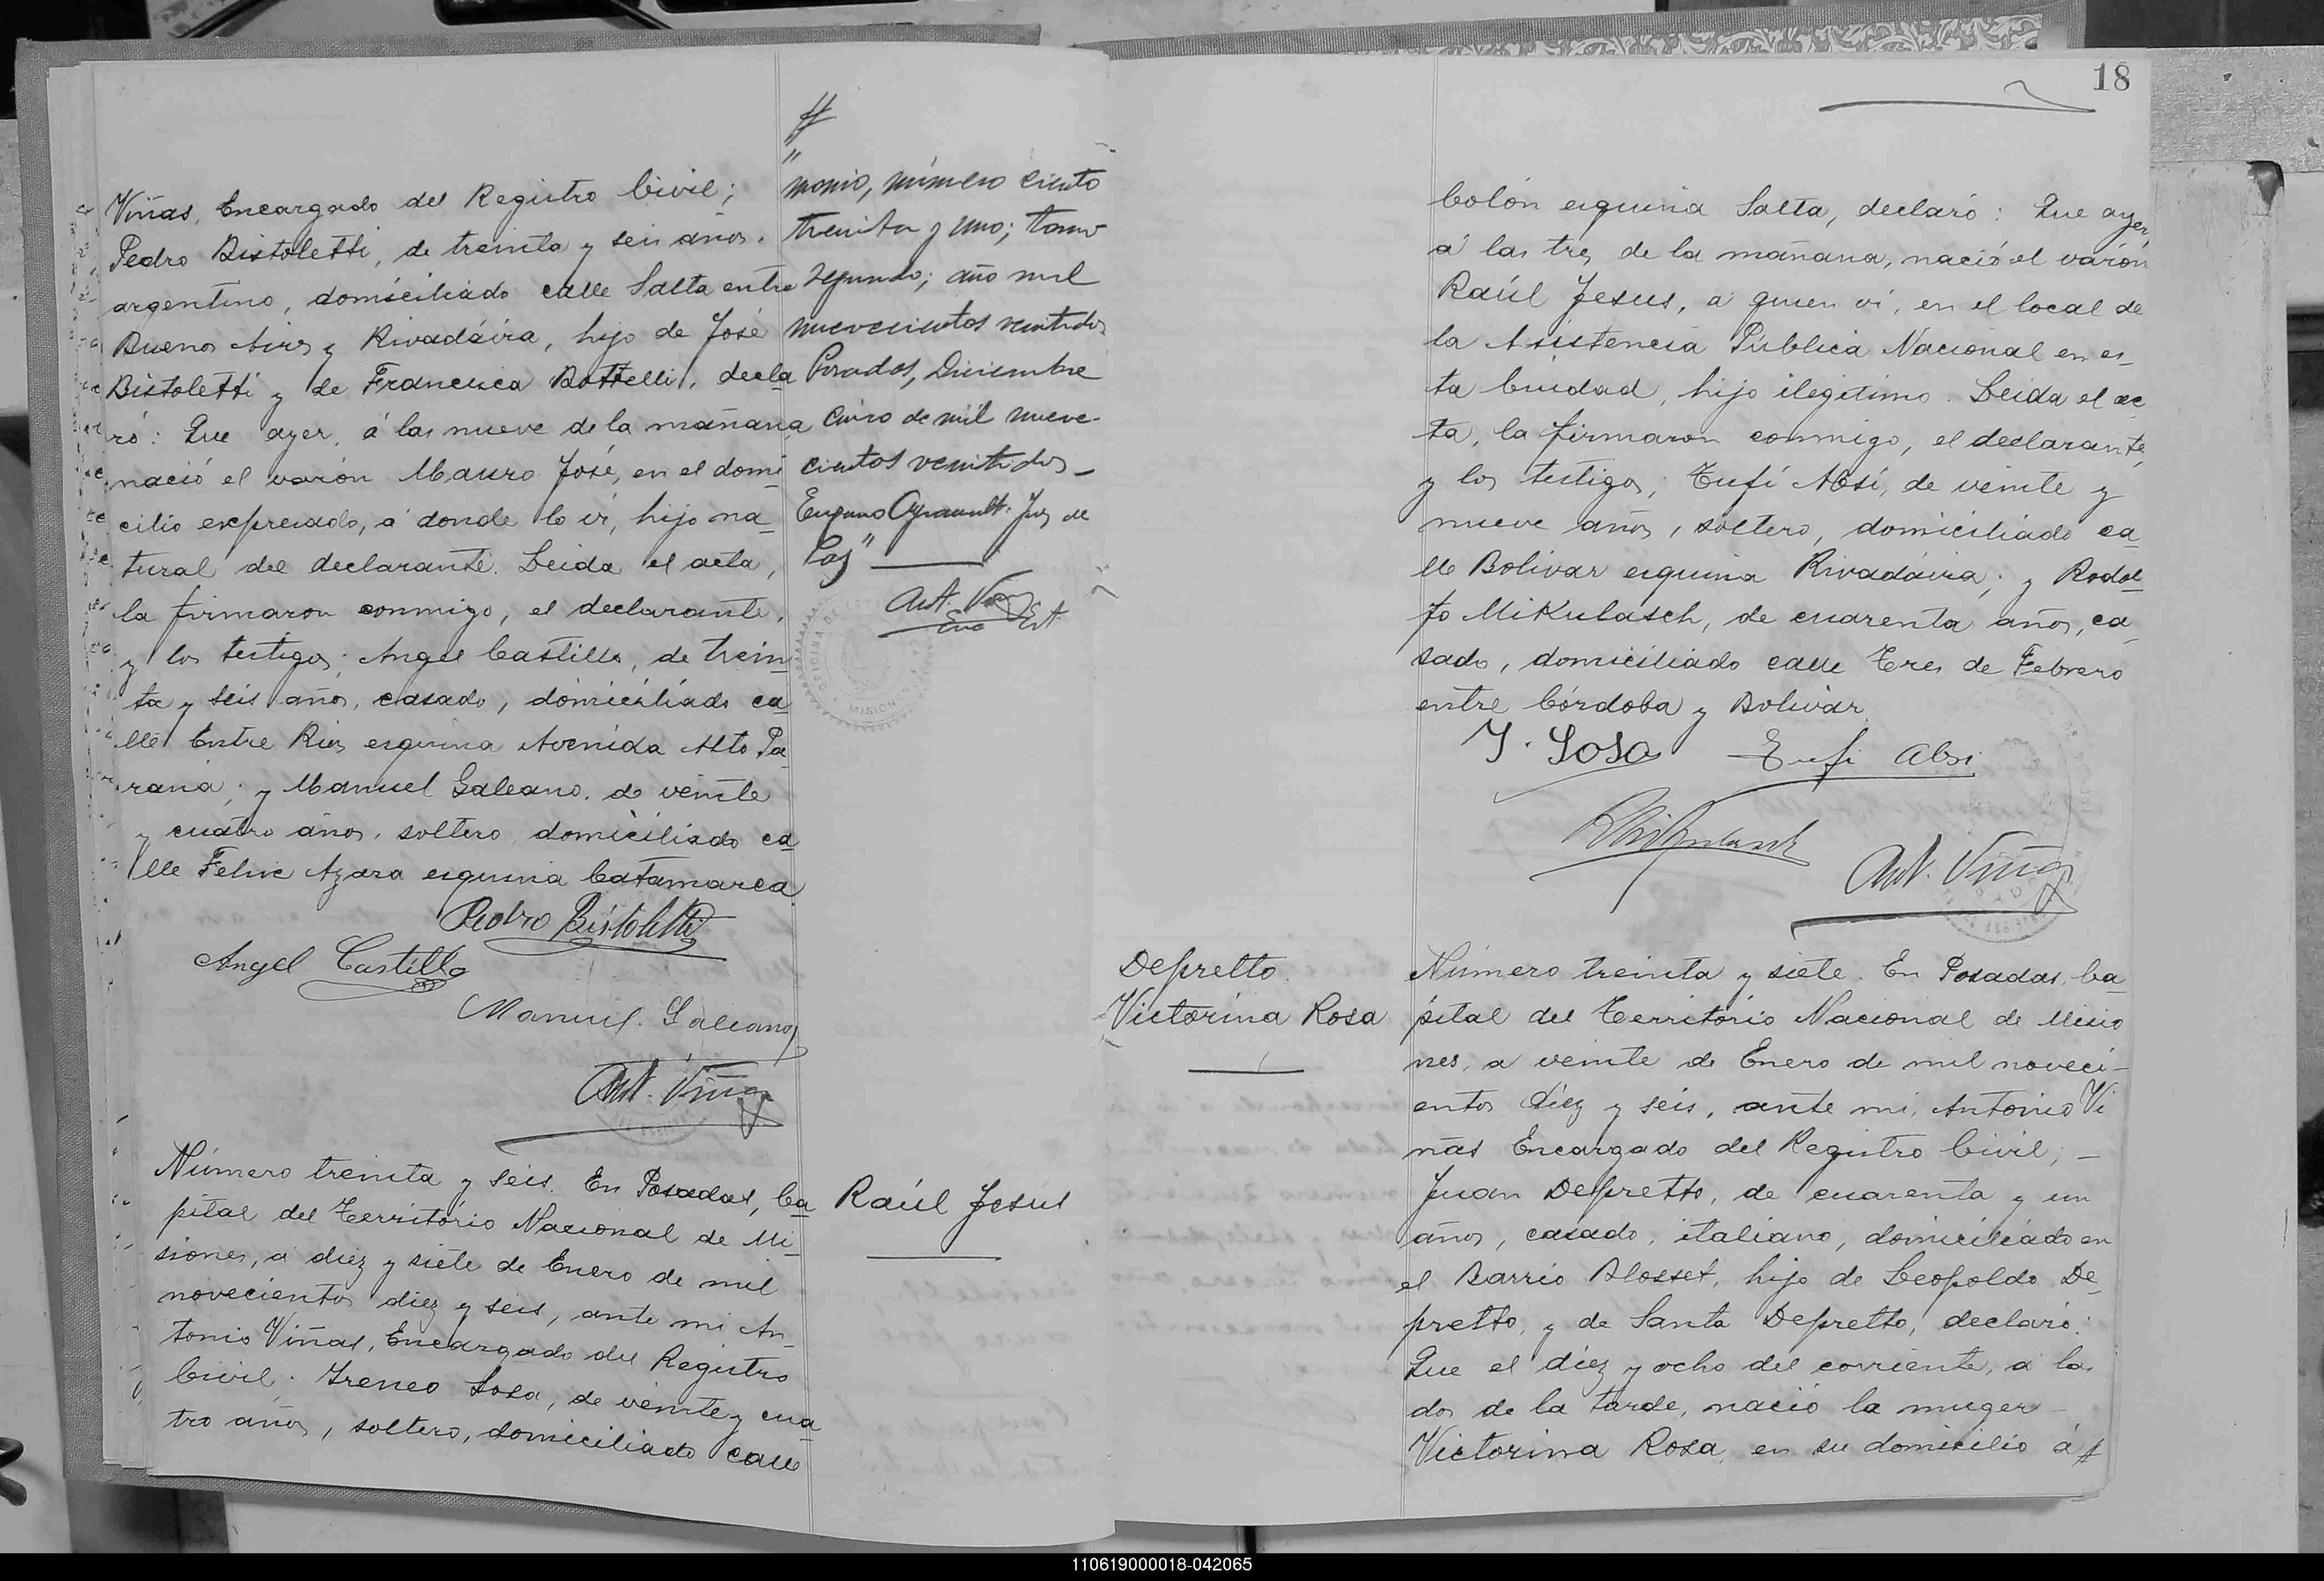 Viñas, Encargado del Registro Civil;
Pedro Bistoletti, de treinta y seis años,
argentino, domiciliado calle Salta entre
Buenos Aires y Rivadávia, hijo de José
Bistoletti y de Francisca Bottelli, decla
ró: Que ayer, á las nueve de la mañana
nació el varón Mauro José, en el domi
cilio expresado, á donde lo ví, hijo na
tural del declarante. Leida el acta,
la firmaron conmigo, el declarante,
y los testigos; Angel Castillo, de trein
ta y seis años, casado, domiciliado ca
lle Entre Rios esquina Avenida Alto Pa
raná; y Manuel Galeano, de veinte
y cuatro años, soltero, domiciliado ca
lle Felix Azara esquina Catamarca
Pedro Bistoletti
Angel Castillo
Manuel Galeano
Ant. Viñas
Número treinta y seis. En Posadas, Ca
pital del Territorio Nacional de Mi
siones, á diez y siete de Enero de mil
novecientos diez y seis, ante mi An
tonio Viñas, Encargado del Registro
Civil; Ireneo Sosa, de veinte y cua
tro años, soltero, domiciliado calle
monio, número ciento
treinta y uno; tomo
segundo; año mil
novecientos veintidos
Posadas, Diciembre
cinco de mil nove-
cientos veintidos
Juez de
Paz"
Ant. Viñas
OFICINA DE
MISIONES
Raúl Jesus
18
Colón esquina Salta, declaró: Que ayer
á las tres de la mañana, nació el varón
Raúl Jesus, a quien ví, en el local de
la Asistencia Pública Nacional en es
ta Ciudad, hijo ilegitimo. Leida el ac
ta, la firmaron conmigo, el declarante,
y los testigos; Tufí Absi, de veinte y
nueve años, soltero, domiciliado ca
lle Bolivar esquina Rivadávia; y Rodol
fo Mikulasch, de cuarenta años, ca
sado, domiciliado calle Tres de Febrero
entre Córdoba y Bolivár
I. Sosa Tufi Absi
RMikulasch
Ant. Viñas
Depretto
Victorina Rosa
Número treinta y siete. En Posadas, Ca
pital del Territorio Nacional de Misio
nes, a veinte de Enero de mil noveci-
entos diez y seis, ante mi, Antonio Vi
ñas Encargado del Registro Civil; -
Juan Depretto, de cuarenta y un
años, casado, italiano, domiciliado en
el Barrio Blosset, hijo de Leopoldo De
pretto, y de Santa Depretto, declaró:
Que el diez y ocho del corriente, a las
dos de la tarde, nació la muger -
Victorina Rosa, en su domicilio á
110619000018-042065